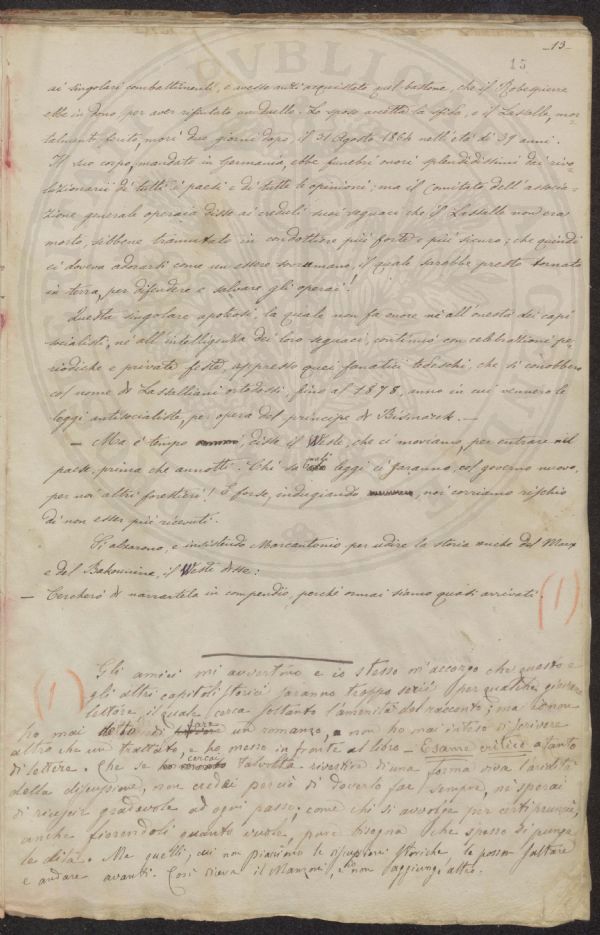 13
15
ai singolari combattimenti, e avesse anzi acquistato quel bastone, che il Robespierre
ebbe in dono per aver rifiutato un duello. Lo sposo accettò la sfida, e il Lassalle, mor=
talmente ferito, morì due giorni dopo, il 31 Agosto 1864 nell'età di 39 anni.
Il suo corpo, mandato in Germania, ebbe funebri onori splendidissimi dai rivo=
luzionarii di tutti i paesi e di tutte le opinioni; ma il Comitato dell'associa=
zione generale operaia disse ai creduli suoi seguaci che il Lassalle non era
morto, sibbene tramutato in condottiere più forte e più sicuro; che quindi
ci doveva adorarsi come un essere sovrumano, il quale sarebbe presto tornato
in terra, per difendere e salvare gli operai!
Questa singolare apoteosi, la quale non fa onore nè all'onestà dei capi
socialisti, nè all'intelligenza dei loro seguaci, continuò con celebrazioni pe=
riodiche e private feste, appresso quei fanatici tedeschi, che si conobbero
col nome di Lassalliani ortodossi, fino al 1878, anno in cui vennero le
leggi antisocialiste, per opera del principe di Bismarck. —
— Ma è tempo, disse il Weste, che ci moviamo, per entrare nel
paese, prima che annotti. Chi sa mali leggi ci faranno, col governo nuovo,
per noi altri forestieri! E forse, indugiando, noi corriamo rischio
di non esser più ricevuti.
Si alzarono, e insistendo Marcantonio per udire la storia anche del Marx
e del Bakounine, il Weste disse:
— Cercherò di narrartela in compendio, perchè ormai siamo quasi arrivati. (1)
(1) Gli amici mi avvertono e io stesso m'accorgo che questo e
gli altri capitoli storici saranno troppo serii per qualche giovane
lettore, il quale cerca soltanto l'amenità del racconto; ma io non
ho mai detto di fare un romanzo, e non ho mai inteso di scrivere
altro che un trattato, e ho messo in fronte al libro — Esame critico
di lettere. Che se cercai talvolta rivestire di una forma viva l'aridità
della discussione, non credei perciò di doverlo far sempre, nè sperai
di riuscir gradevole ad ogni passo; come chi si avvolge per certi
anche fiorendoli quanto vuole, pure bisogna che spesso si punga
le dita. Ma quelli, cui non piacciono le discussioni storiche le posson saltare
e andare avanti. Così diceva il Manzoni, e non aggiungo altro.